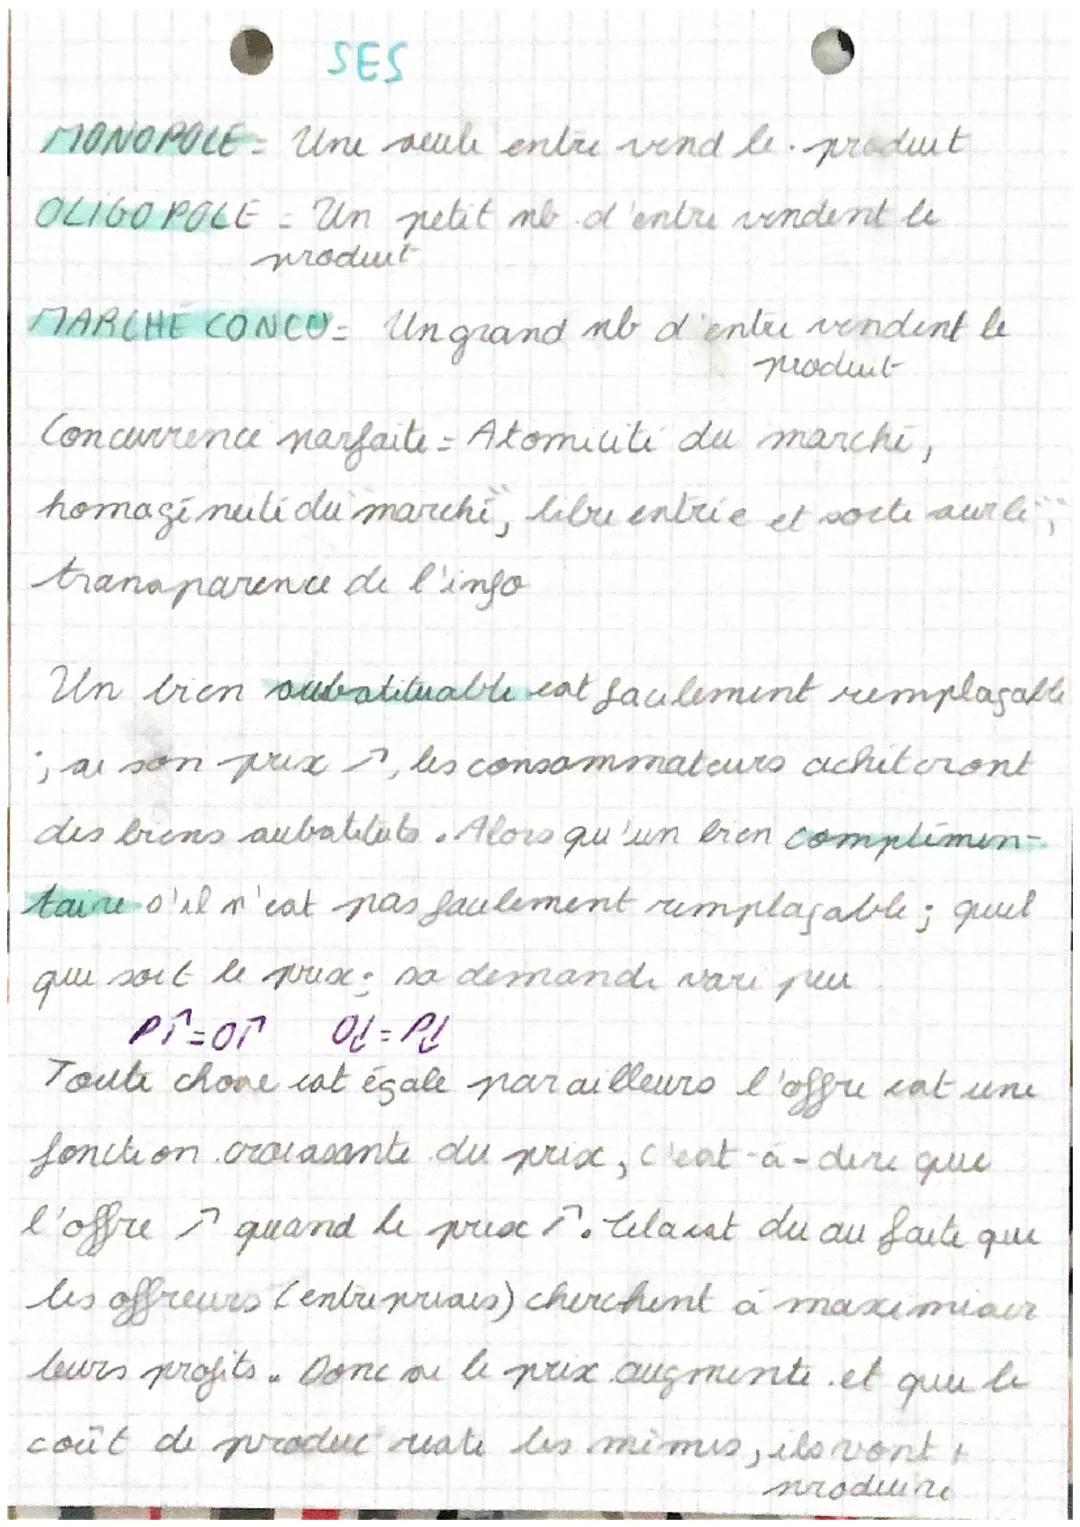 SES
MONOPOLE = Une seule entre vend le produit
OLIGOPOLE = Un petit nb d'entre vendent le
produit
MARCHÉ CONCU = Un grand nb d'entre vendent le
produit
Concurrence parfaite = Atomicité du marché,
homogéneité du marché, libre entrée et sorte sur le ",
transparence de l'info
Un bien substituable est facilement remplaçable
; si son prix ↗, les consommateurs achèteront
des biens substituts. Alors qu'un bien complémen-
taire s'il n'est pas facilement remplaçable ; quel
que soit le prix ; sa demande vari peu
P↑=O↑ O↓=P↓
Toute chose est égale par ailleurs l'offre est une
fonction croissante du prix, c'est-à-dire que
l'offre ↗ quand le prix ↑. Cela est du au faite que
les offreurs (entreprises) cherchent à maximiser
leurs profits. Donc si le prix augmente et que le
coût de produc° reste les mêmes, ils vont +
produire